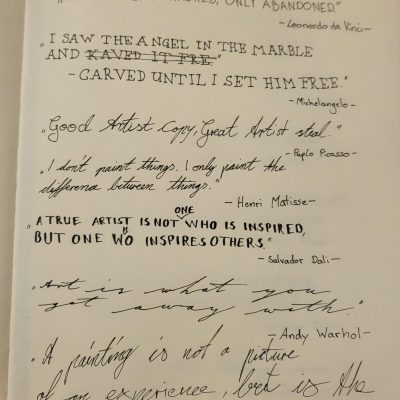 FINISHED, ONLY ABANDONED"
- Leonardo da Vinci -
„I SAW THE ANGEL IN THE MARBLE
AND KAVED IT FRE."
- CARVED UNTIL I SET HIM FREE."
- Michelangelo -
„Good Artist Copy, Great Artist steal."
- Paplo Picasso -
„I don't paint things. I only paint the
difference between things."
- Henri Matisse -
„A TRUE ARTIST IS NOT ONE WHO IS INSPIRED,
BUT ONE WHO INSPIRES OTHERS."
- Salvador Dali -
„Art is what you
get away with."
- Andy Warhol -
„A painting is not a picture
of an experience, but is the